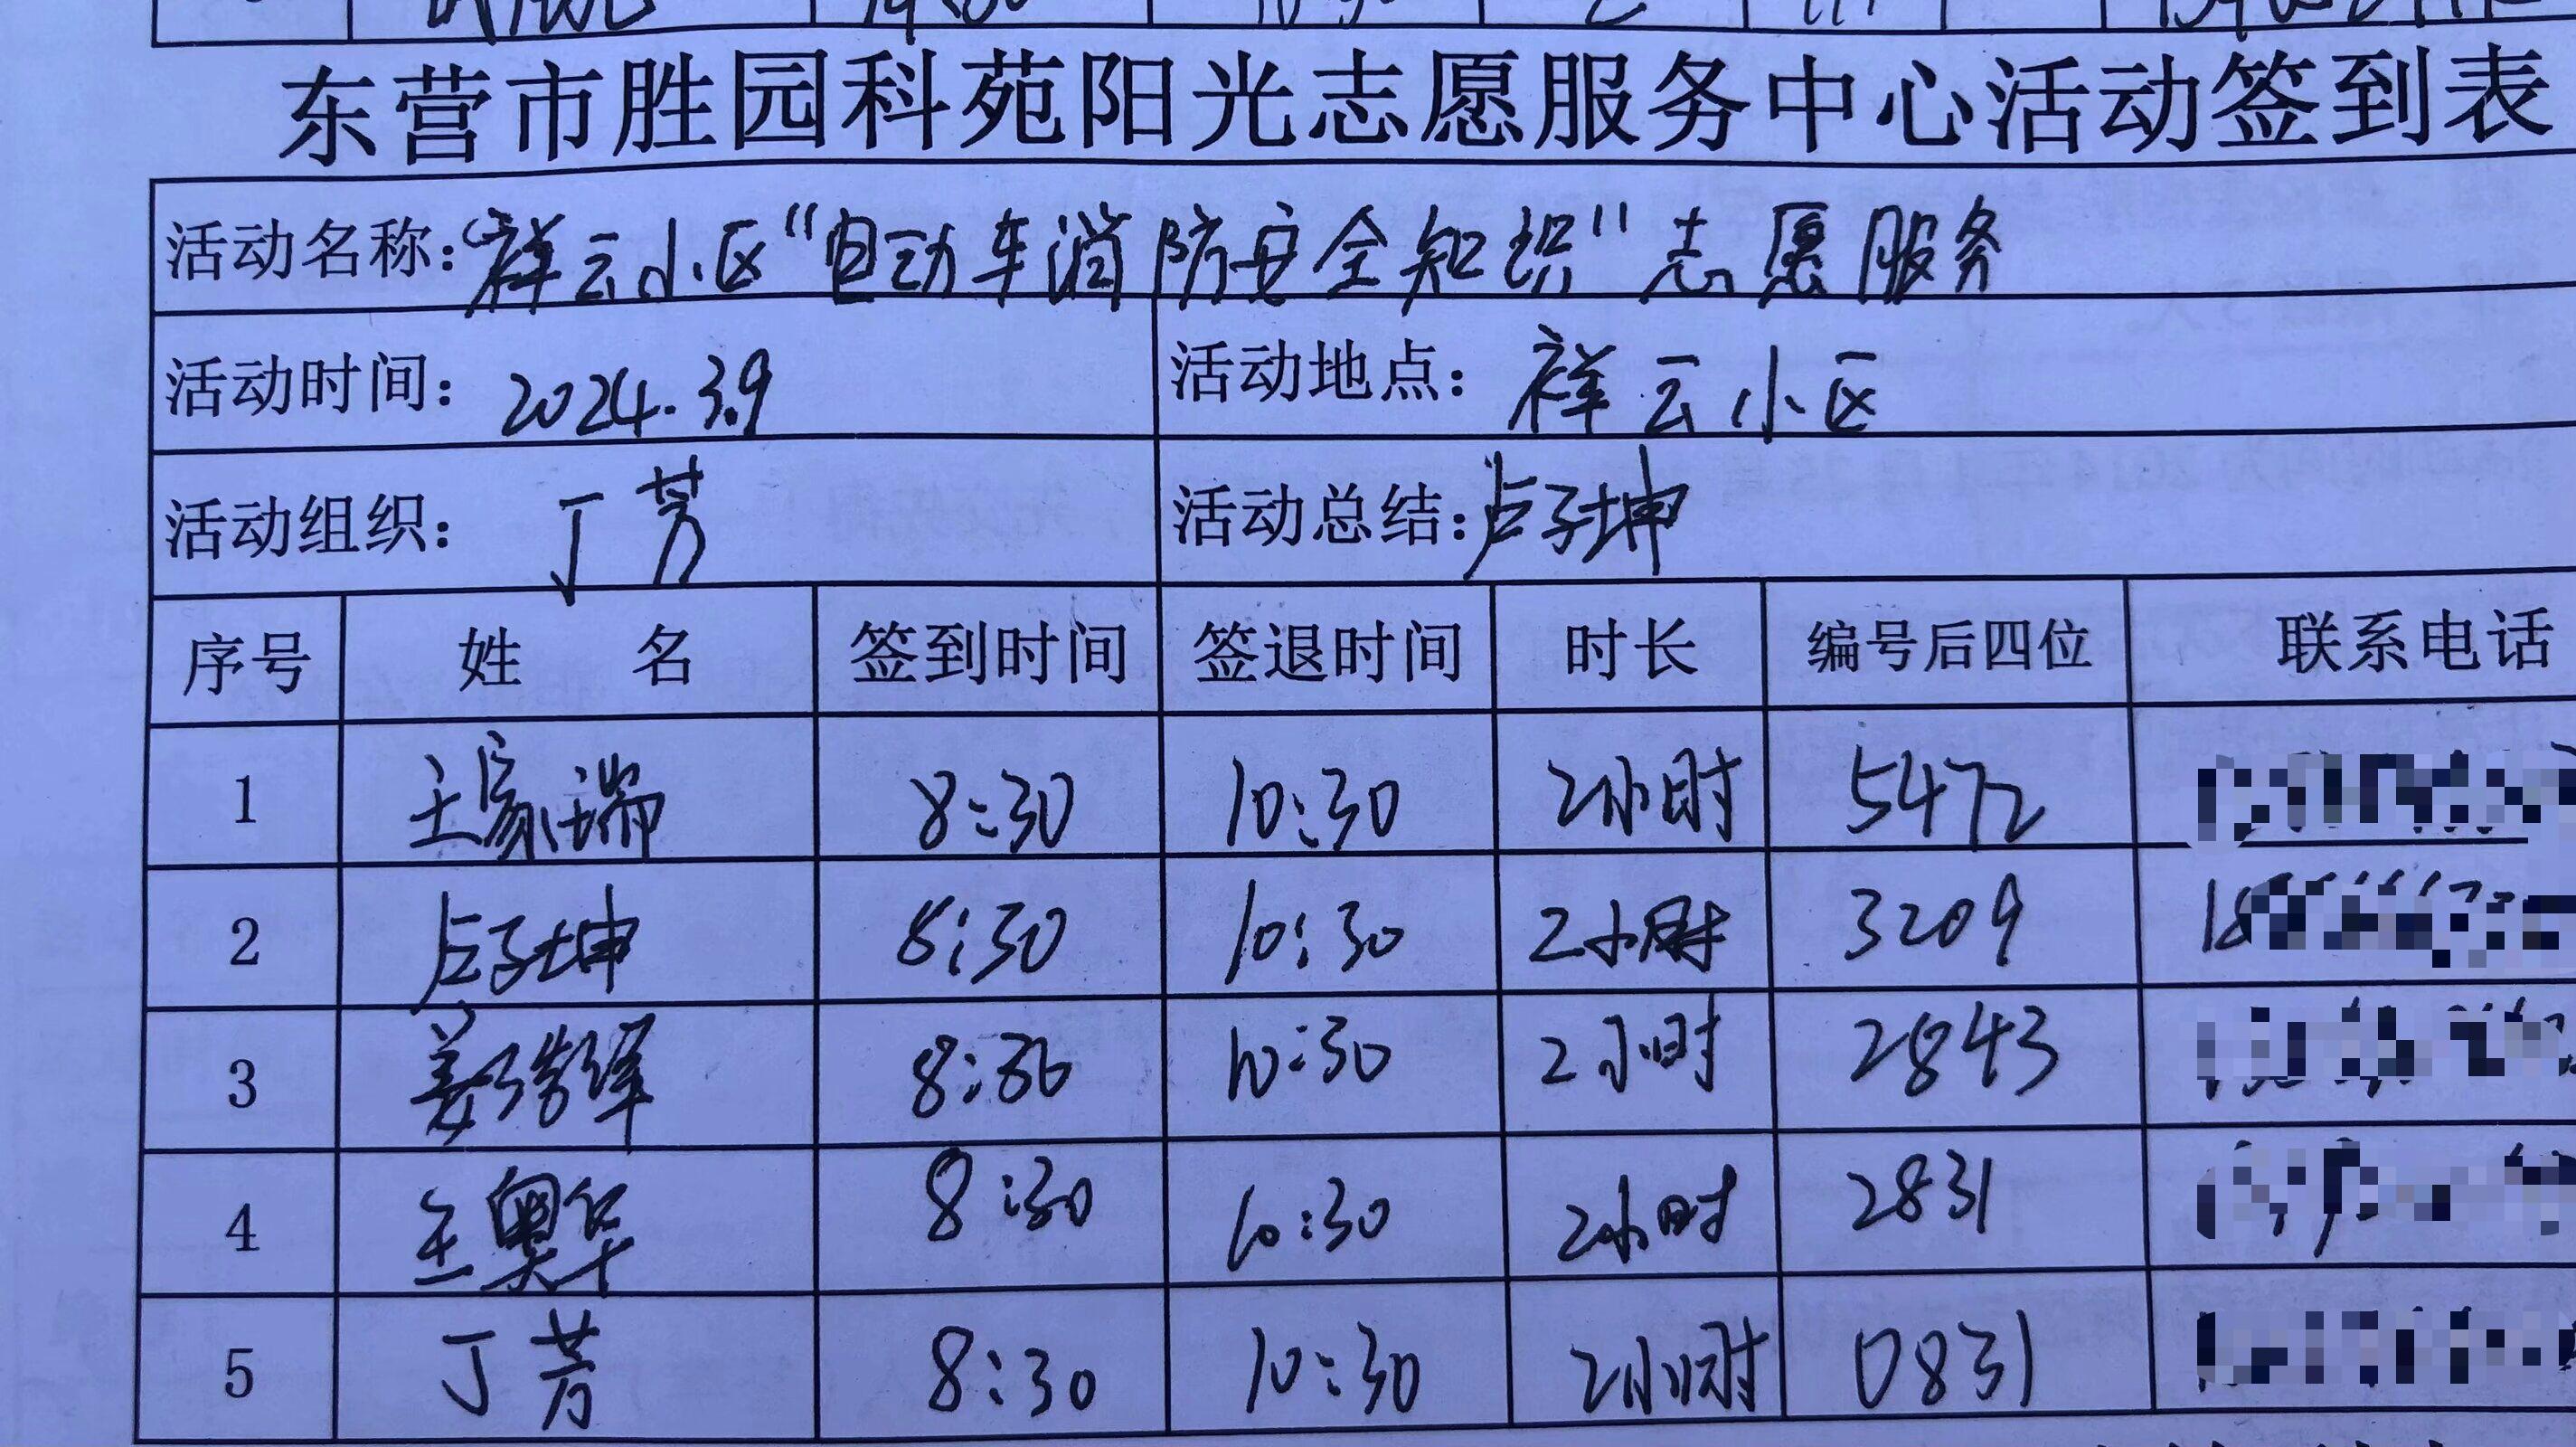 东营市胜园科苑阳光志愿服务中心活动签到表
活动名称：祥云小区“自动车消防安全知识”志愿服务
活动时间：2024.3.9 活动地点：祥云小区
活动组织：丁芳 活动总结：卢子坤
序号 姓 名 签到时间 签退时间 时长 编号后四位 联系电话
1 王家瑞 8:30 10:30 2小时 5472
2 卢子坤 8:30 10:30 2小时 3209
3 姜 8:30 10:30 2小时 2843
4 王奥华 8:30 10:30 2小时 2831
5 丁芳 8:30 10:30 2小时 0831